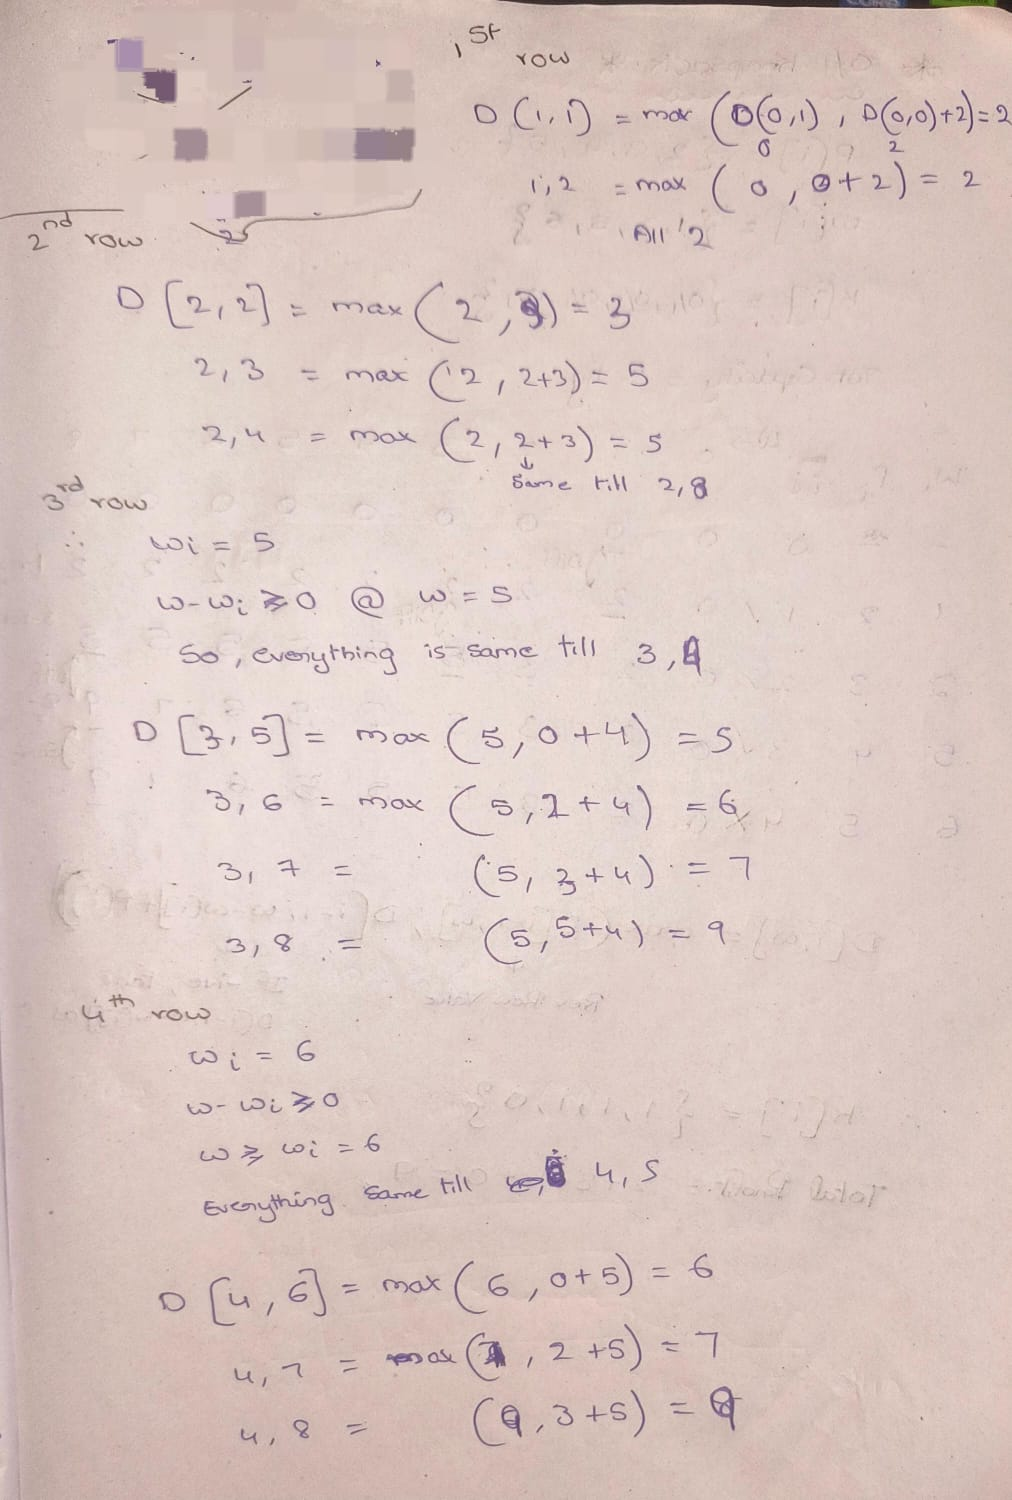 1st row
D (1,1) = max (D(0,1) , D(0,0)+2) = 2
0 2
1,2 = max ( 0 , 0+2) = 2
All 2
2nd row
D [2,2] = max ( 2 , 3) = 3
2,3 = max ( 2 , 2+3) = 5
2,4 = max (2, 2+3) = 5
↓
same till 2,8
3rd row
∴ wi = 5
w-wi ⩾ 0 @ w = 5
So, everything is same till 3,4
D [3,5] = max ( 5, 0+4) = 5
3,6 = max ( 5,2+4) = 6
3, 7 = (5, 3+4) = 7
3,8 = (5,5+4) = 9
4th row
wi = 6
w-wi ⩾ 0
w ⩾ wi = 6
Everything same till 4,5
D [4,6] = max ( 6, 0+5) = 6
4,7 = max (7, 2+5) = 7
4,8 = (9, 3+5) = 9